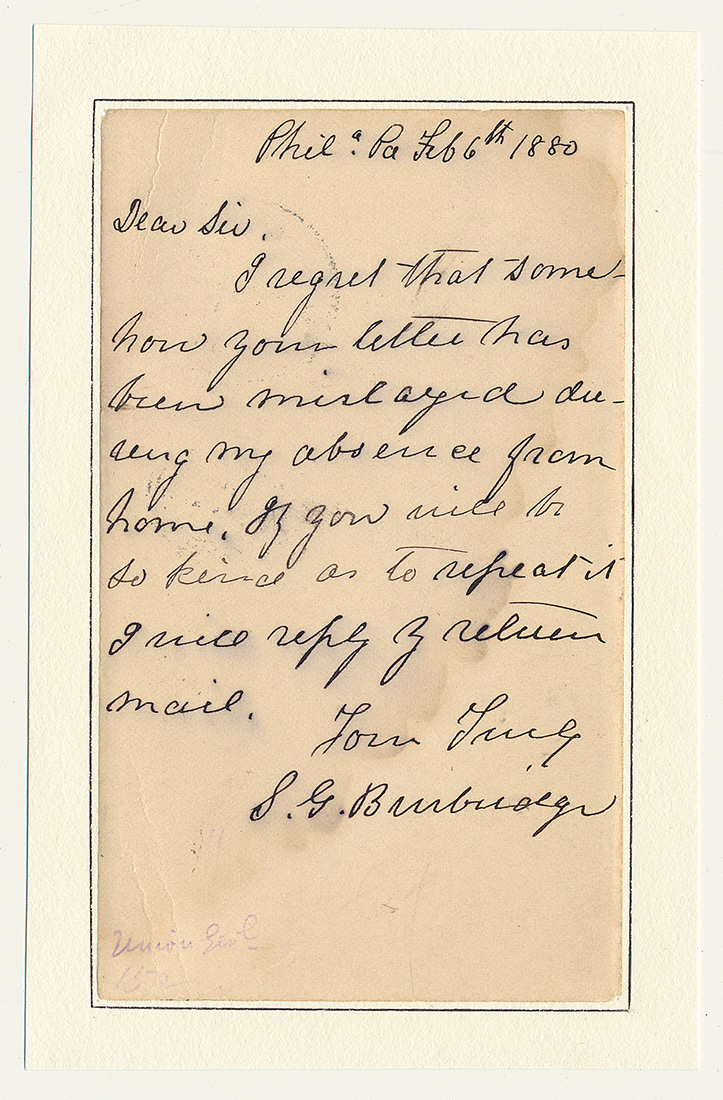 Phil.ª Pa Feb 6th 1880
Dear Sir,
I regret that some-
how your letter has
been mislayed du-
ring my absence from
home. If you will be
so kind as to repeat it
I will reply by return
mail.
Your Truly
S. G. Burbridge
Union Genl